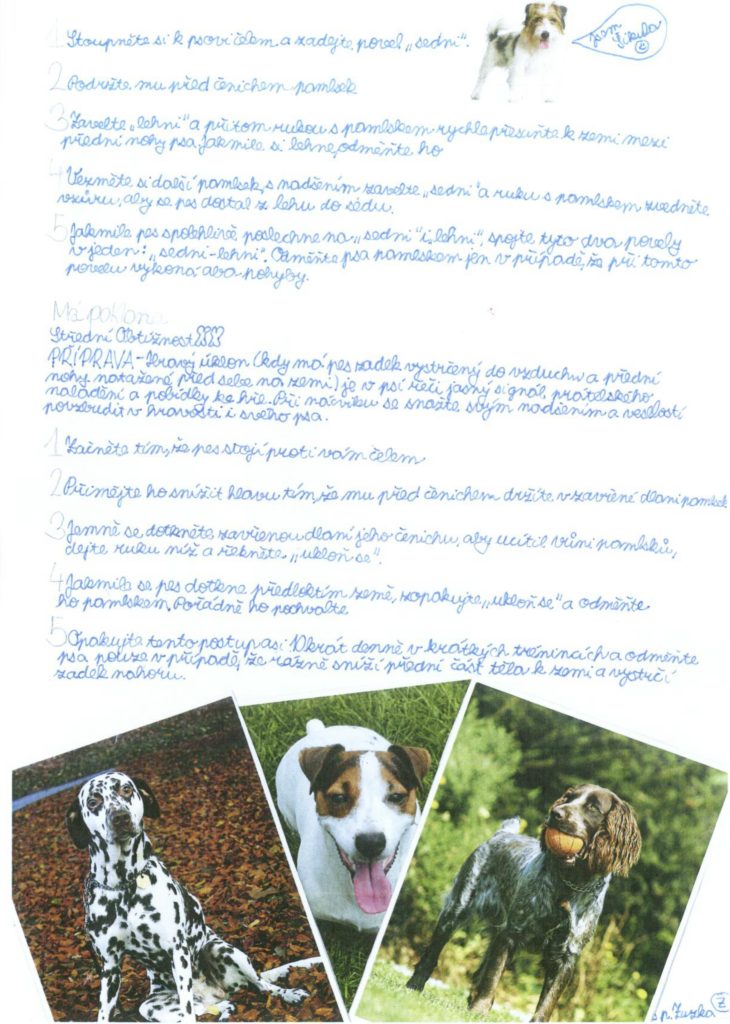 1 Stoupněte si k psovi čelem a zadejte povel „sedni".
jsem
2 Podržte mu před čenichem pamlsek
3 Zavelte „lehni" a přitom rukou s pamlskem rychle přesuňte k zemi mezi
přední nohy psa. Jakmile si lehne, odměňte ho
4 Vezměte si další pamlsek, s nadšením zavelte „sedni" a ruku s pamlskem zvedněte
vzůru, aby se pes dostal z lehu do sedu.
5 Jakmile pes spolehlivě poslechne na „sedni" i „lehni", spojte tyto dva povely
v jeden: „sedni-lehni". Odměňte psa pamlskem jen v případě, že při tomto
povelu vykoná oba pohyby.
Má poklona
Střední Obtížnost
PŘÍPRAVA - Hravý úklon (kdy má pes zadek vystrčený do vzduchu a přední
nohy natažené před sebe na zemi) je v psí řeči jasný signál prátelského
naladění a pobídky ke hře. Při nácviku se snažte svým nadšením a veselostí
povzbudit v hravosti i svého psa.
1 Začněte tím, že pes stojí proti vám čelem
2 Přimějte ho snížit hlavu tím, že mu před čenichem držíte v zavřené dlani pamlsek
3 Jemně se dotkněte zavřenou dlaní jeho čenichu, aby ucítil vůni pamlsků,
dejte ruku níž a řekněte „ukloň se".
4 Jakmile se pes dotkne předloktím země, zopakujte „ukloň se" a odměňte
ho pamlskem. Pořádně ho pochvalte
5 Opakujte tento postup asi 10krát denně v krátkých trénincích a odměňte
psa pouze v případě, že rázně sníží přední část těla k zemi a vystrčí
zadek nahoru.
s p. Zuzka Ž